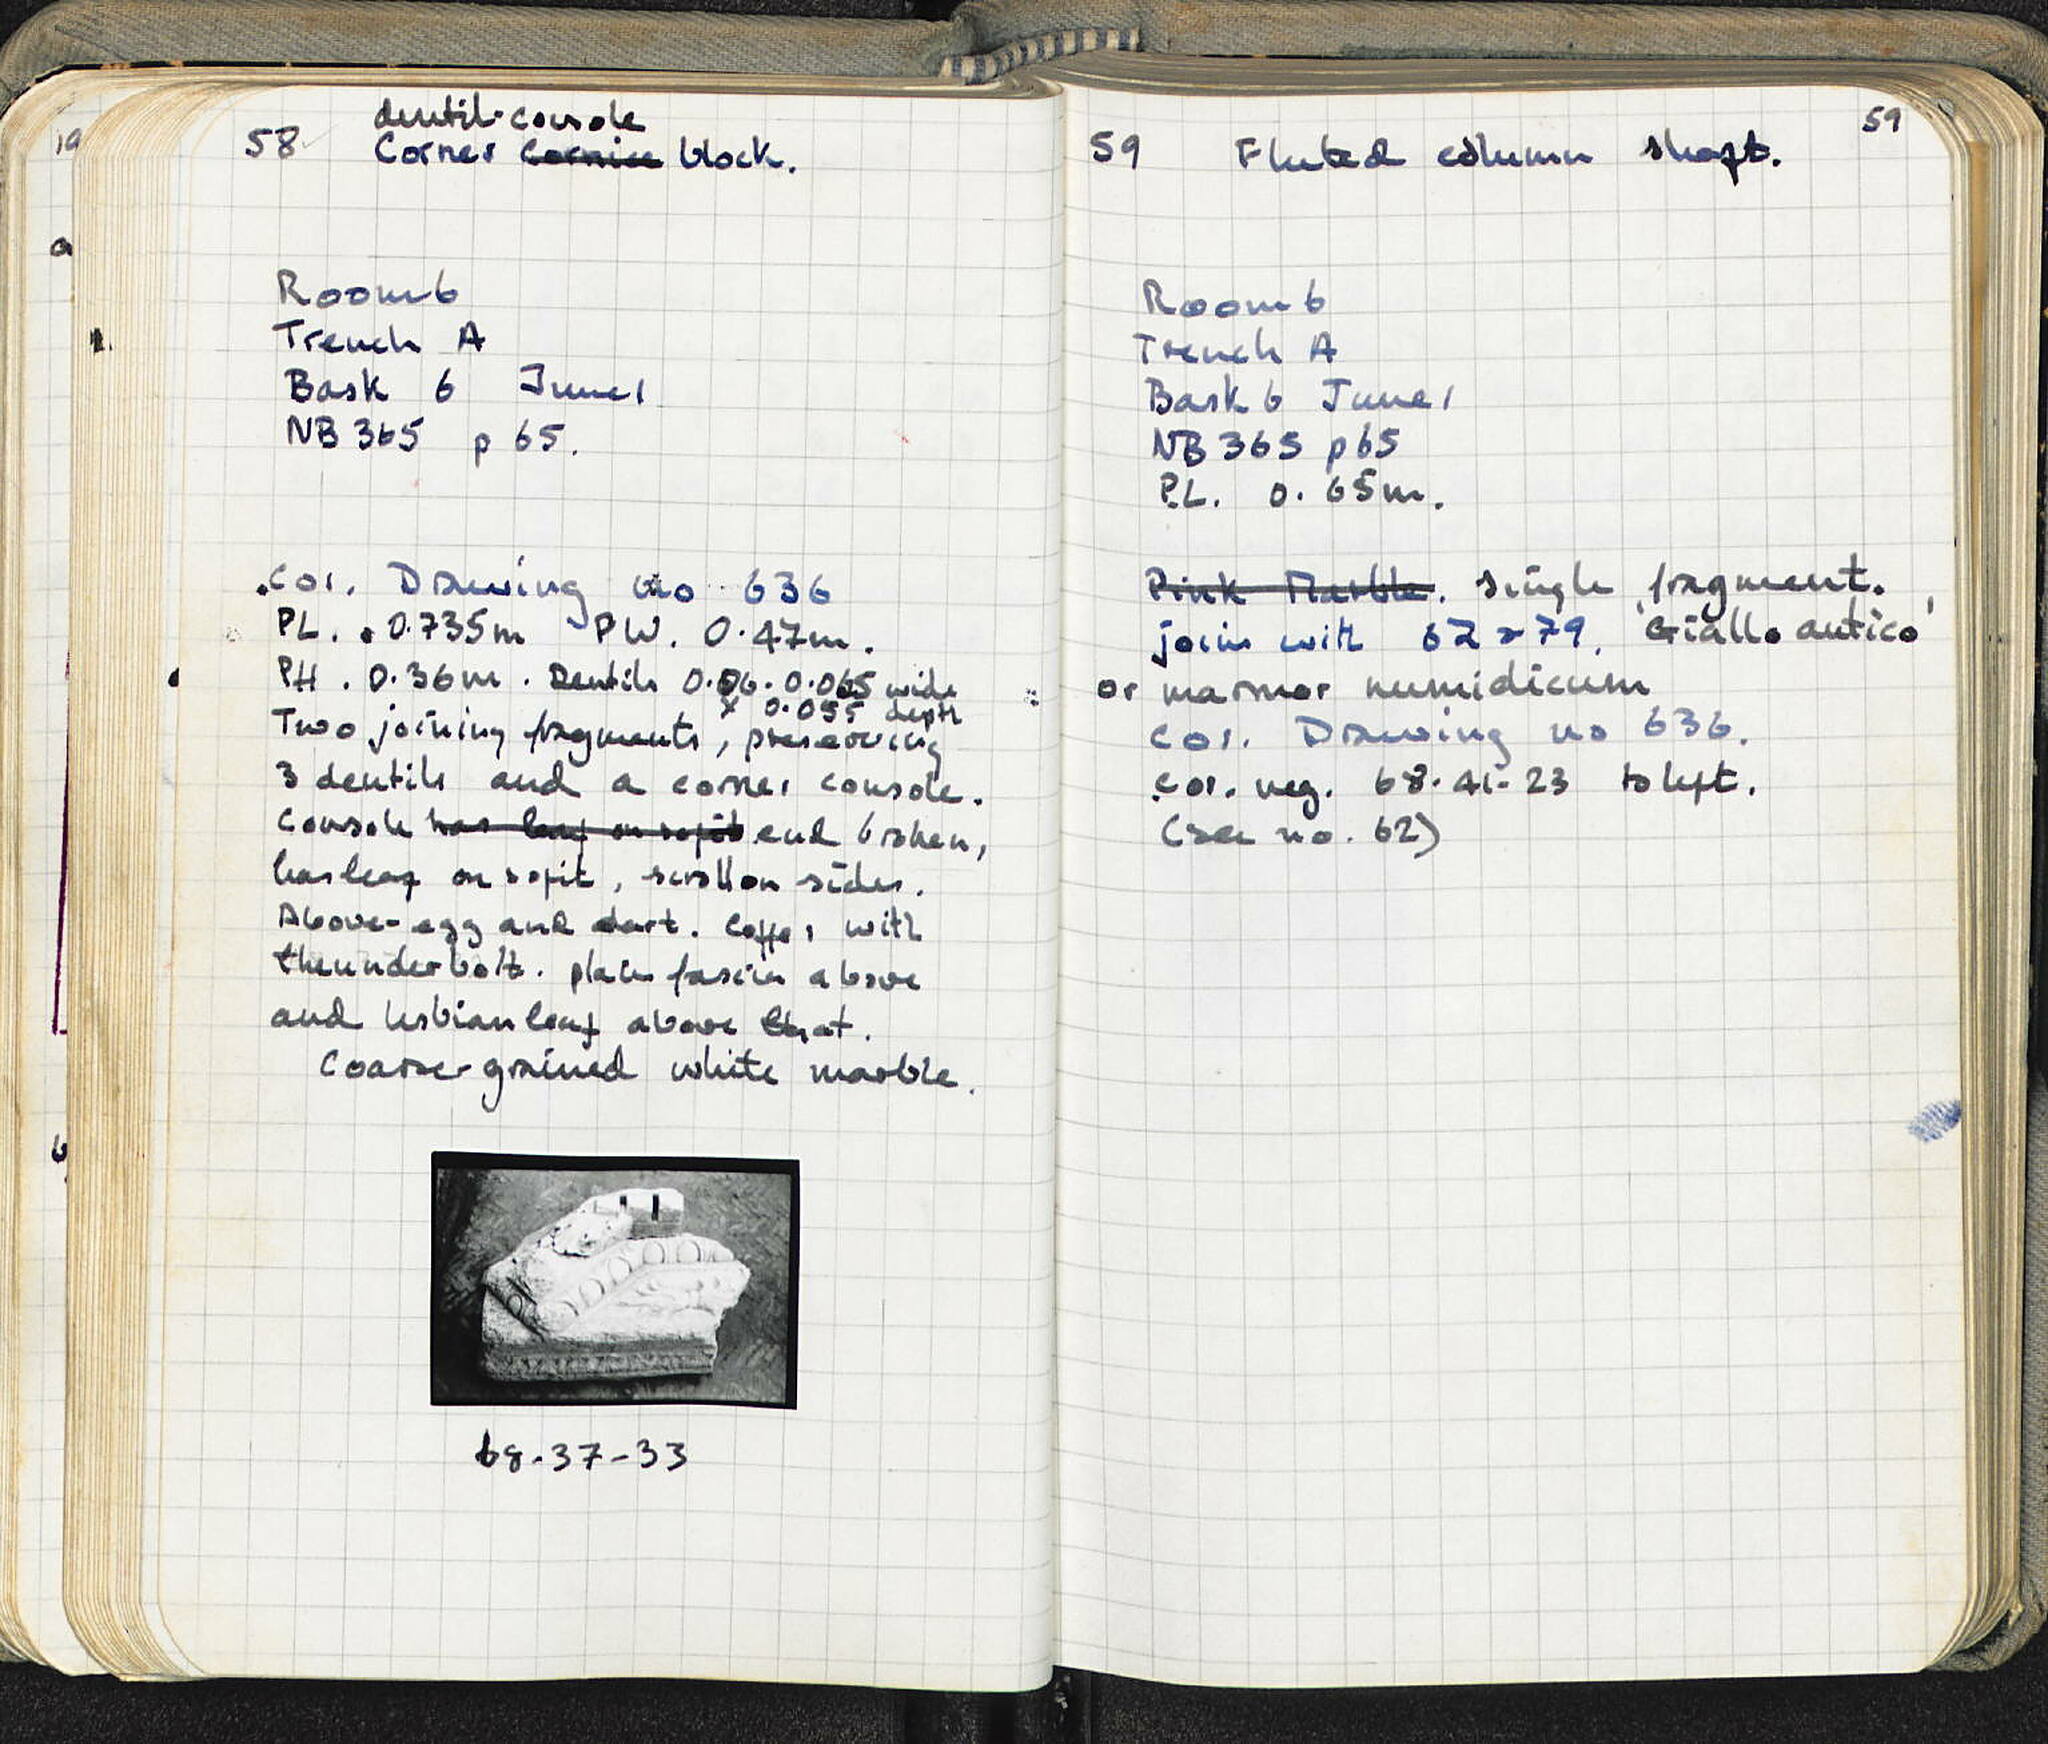 58 dentil-console
Corner cornice block.
Room 6
Trench A
Bask 6 June 1
NB 365 p 65.
Cor. Drawing no 636
PL. 0.735m PW. 0.47m.
PH. 0.36m. Dentils 0.06-0.065 wide
x 0.055 depth
Two joining fragments, preserving
3 dentils and a corner console.
Console has leaf on sofit end broken,
has leaf on sofit, scroll on sides.
Above- egg and dart. Coffer with
theunderbolt. plain fascia above
and lesbian leaf above that.
Coarse-grained white marble.
68-37-33
59
59 Fluted column shaft.
Room 6
Trench A
Bask 6 June 1
NB 365 p 65
P.L. 0.65m.
Pink Marble. single fragment.
joins with 62 & 79. 'Giallo antico'
or marmor numidicum
Cor. Drawing no 636.
Cor. neg. 68-41-23 to left.
(see no. 62)